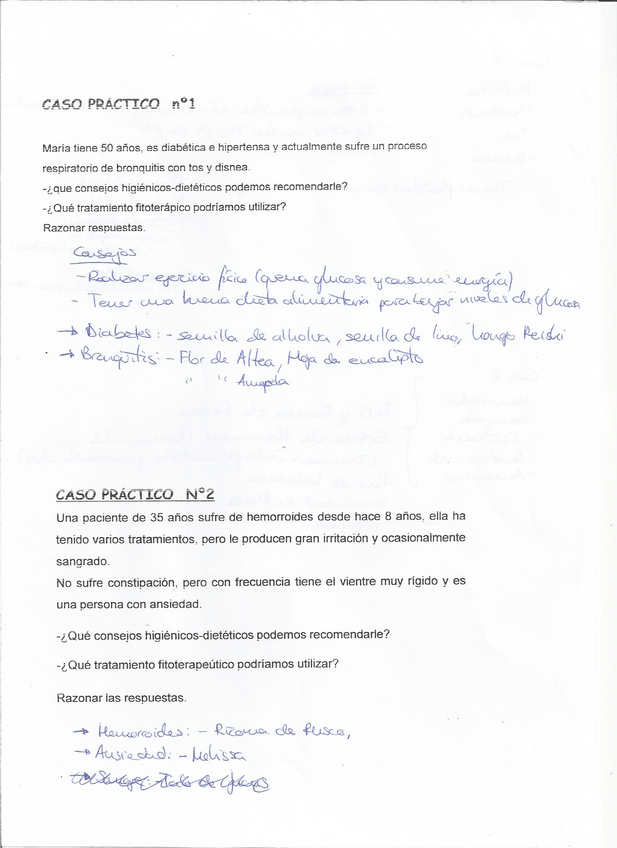 CASO PRÁCTICO nº1
María tiene 50 años, es diabética e hipertensa y actualmente sufre un proceso
respiratorio de bronquitis con tos y disnea.
-¿que consejos higiénicos-dietéticos podemos recomendarle?
-¿Qué tratamiento fitoterápico podríamos utilizar?
Razonar respuestas.
Consejos
- Realizar ejercicio físico (quema glucosa y consume energía)
- Tener una buena dieta alimentaria para bajar niveles de glucosa
→ Diabetes: - semilla de alholva, semilla de lino, hongo Reishi
→ Bronquitis: - Flor de Altea, Hoja de eucalipto
" " Amapola
CASO PRÁCTICO Nº2
Una paciente de 35 años sufre de hemorroides desde hace 8 años, ella ha
tenido varios tratamientos, pero le producen gran irritación y ocasionalmente
sangrado.
No sufre constipación, pero con frecuencia tiene el vientre muy rígido y es
una persona con ansiedad.
-¿Qué consejos higiénicos-dietéticos podemos recomendarle?
-¿Qué tratamiento fitoterapeútico podríamos utilizar?
Razonar las respuestas.
→ Hemorroides: - Rizoma de Rusco,
→ Ansiedad: - Melissa